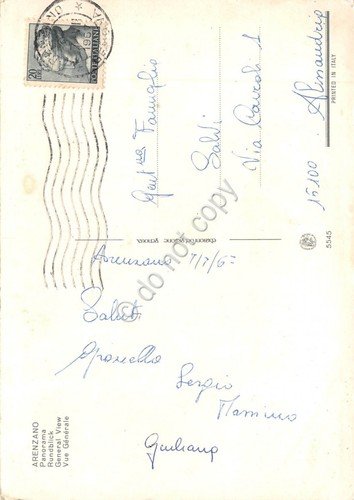 ARENZANO
Panorama
Rundblick
General View
Vue Générale
Arenzano 7/7/67
Saluti
Sergio
Massimo
Giuliana
Gent.ma Famiglia
Saldi
Via
15100 Alessandria
PRINTED IN ITALY
5545
POSTE ITALIANE
do not copy